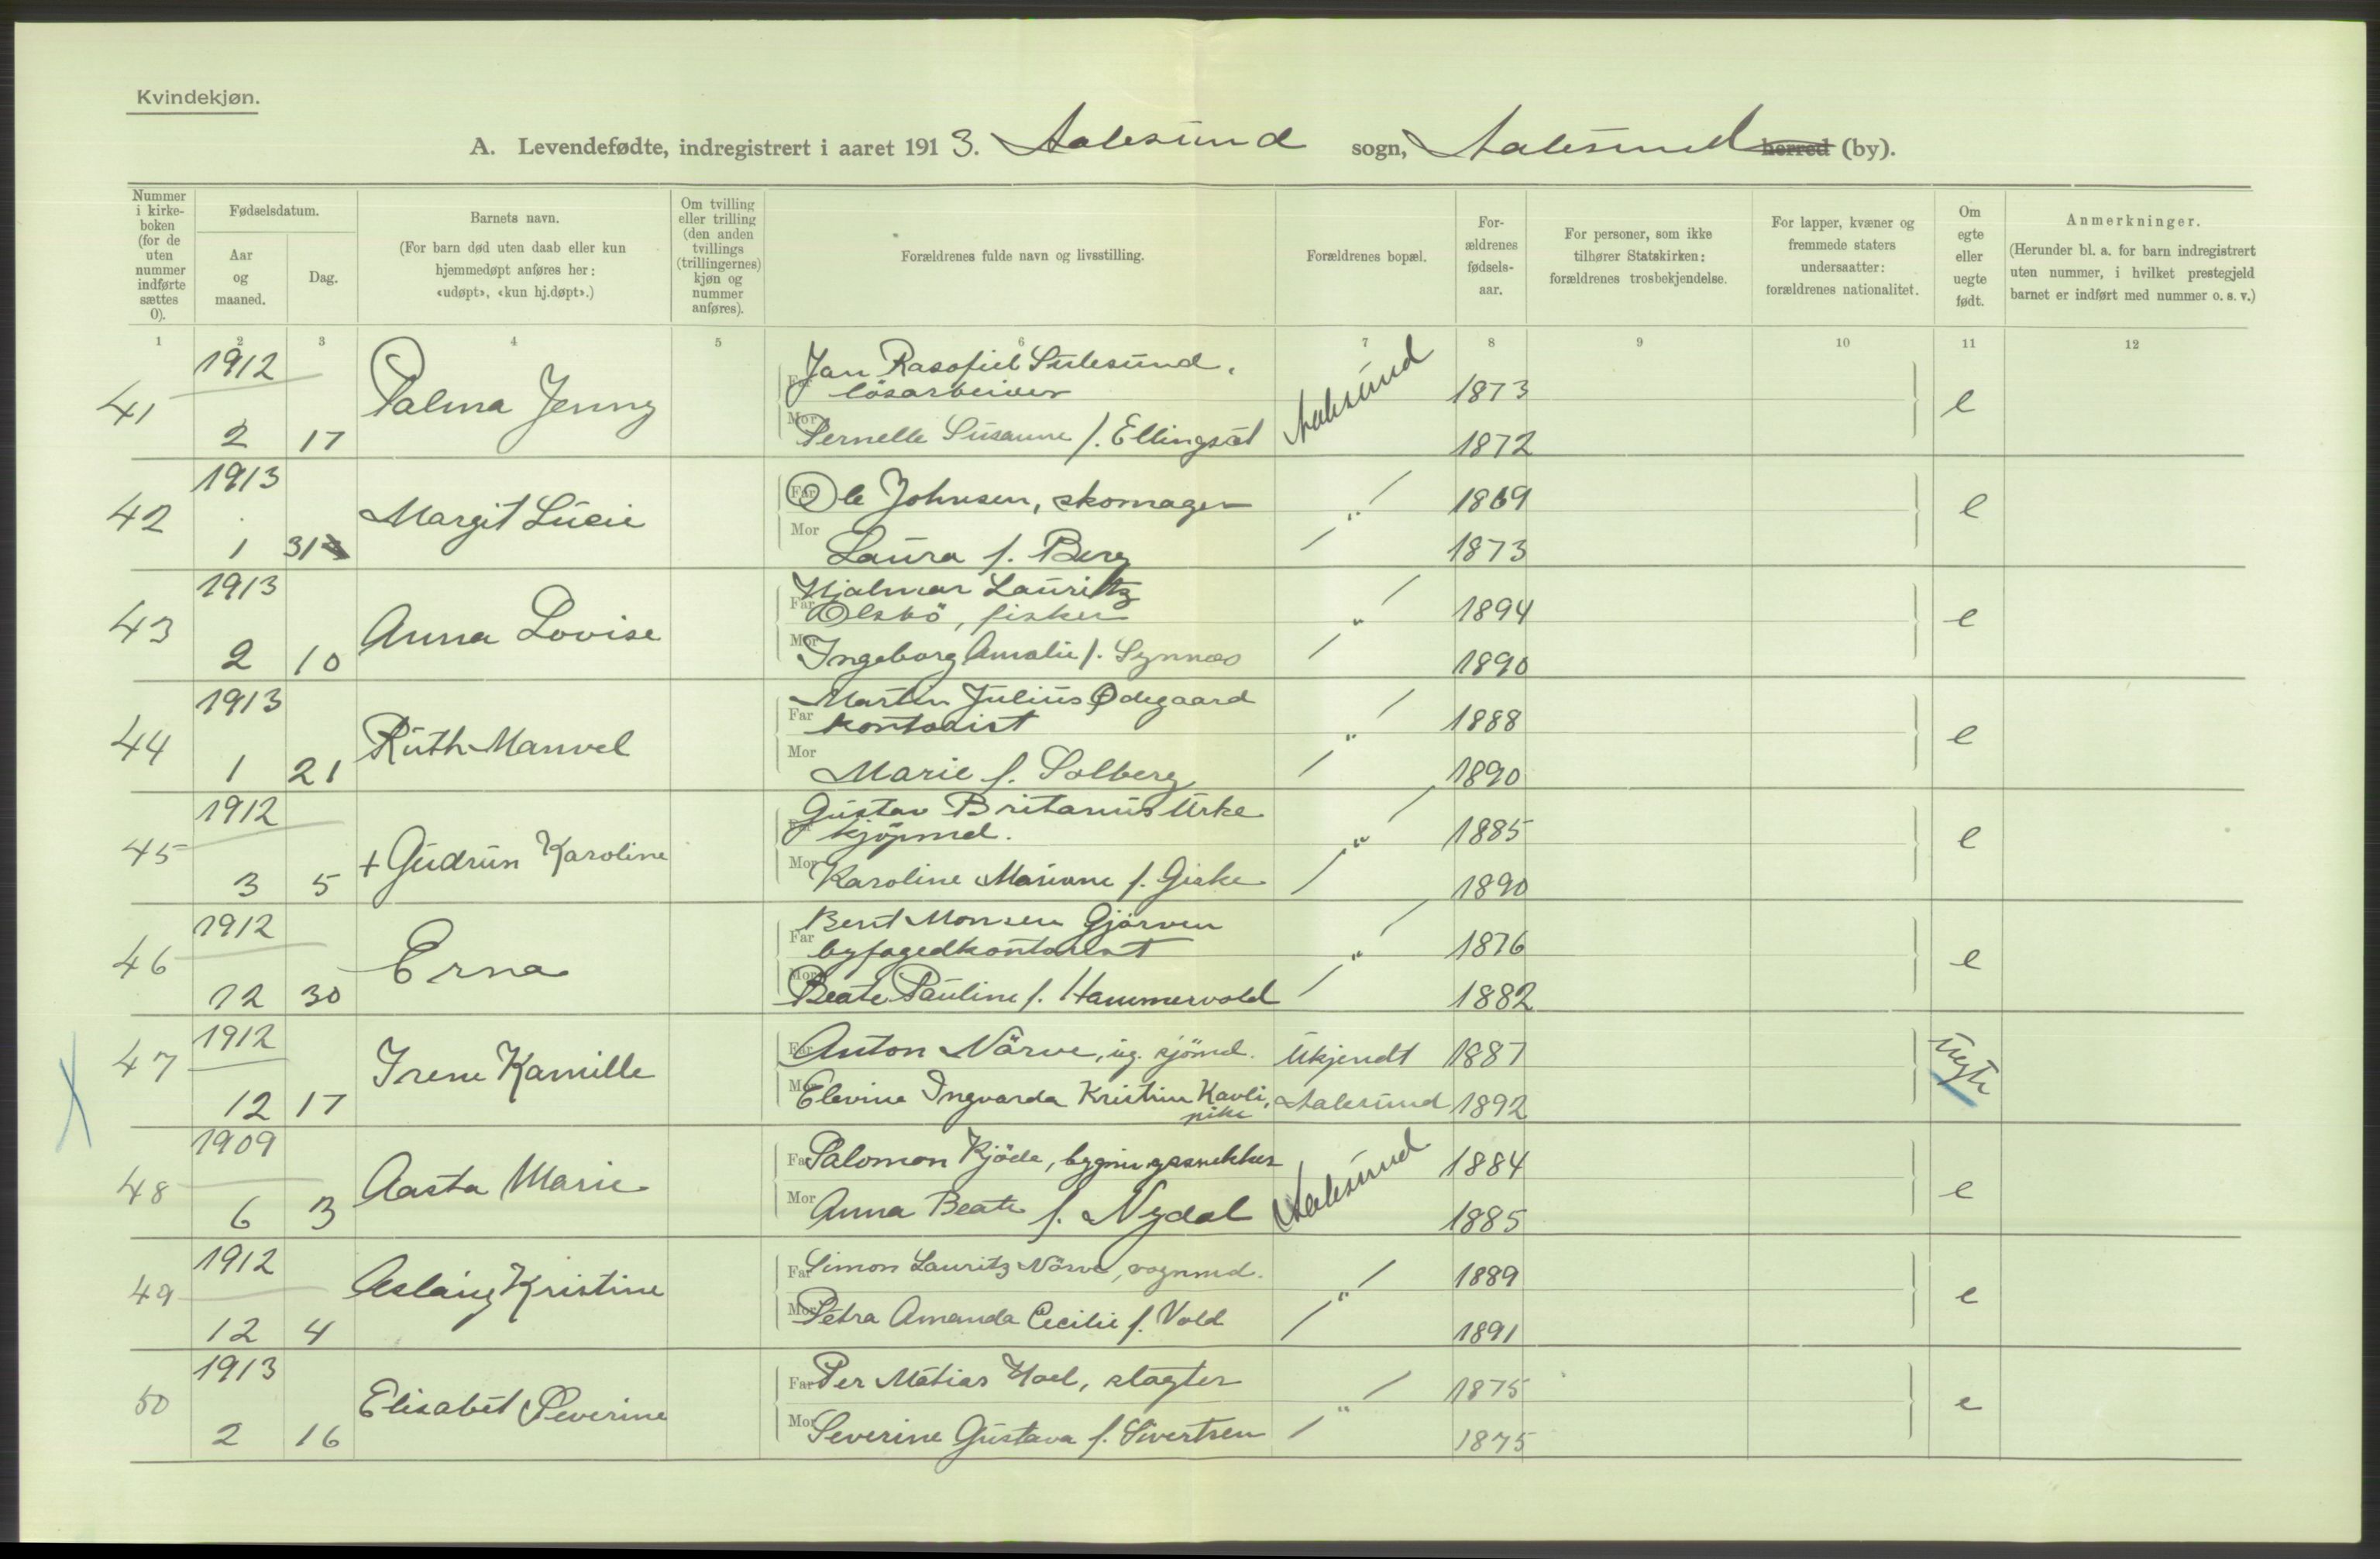 Kvindekjøn.
A. Levendefødte, indregistrert i aaret 1913. Aalesund sogn, Aalesund herred (by).
Nummer i kirke-boken (for de uten nummer indførte sættes 0).
Fødselsdatum.
Aar og maaned.
Dag.
Barnets navn.
(For barn død uten daab eller kun hjemmedøpt anføres her: «udøpt», «kun hj.døpt».)
Om tvilling eller trilling (den anden tvillings (trillingernes) kjøn og nummer anføres).
Forældrenes fulde navn og livsstilling.
Forældrenes bopæl.
For-ældrenes fødsels-aar.
For personer, som ikke tilhører Statskirken: forældrenes trosbekjendelse.
For lapper, kvæner og fremmede staters undersaatter: forældrenes nationalitet.
Om egte eller uegte født.
Anmerkninger.
(Herunder bl. a. for barn indregistrert uten nummer, i hvilket prestegjeld barnet er indført med nummer o. s. v.)
1 2 3 4 5 6 7 8 9 10 11 12
41 1912 2 17 Palma Jenny
Far Jan Rasofiel Sulesund, Aalesund 1873 e
løsarbeider
Mor Pernelle Susanne f. Ellingsæt 1872
42 1913 1 31 Margit Lucie
Far Ole Johnsen, skomager " 1869 e
Mor Laura f. Berg 1873
43 1913 2 10 Anna Lovise
Far Hjalmar Lauritz " 1894 e
Olsbö, fisker
Mor Ingeborg Amalie f. Synnæs 1890
44 1913 1 21 Ruth Manvel
Far Martin Julius Ødegaard " 1888 e
kontorist
Mor Marie f. Solberg 1890
45 1912 3 5 + Gudrun Karoline
Far Gustav Britanius Urke " 1885 e
kjöpmd.
Mor Karoline Mariane f. Giske 1890
46 1912 12 30 Erna
Far Berit Monsen Gjörven " 1876 e
byfogedkontorist
Mor Beate Pauline f. Hammervold 1882
47 1912 12 17 Irene Kamille
Far Anton Nörve, ug. sjömd. Ukjendt 1887 uegte
Mor Elevine Ingvarda Kristine Kavli, Aalesund 1892
pike
48 1909 6 3 Aasta Marie
Far Salomon Kjöde, bygningssnekker Aalesund 1884 e
Mor Anna Beate f. Nydal 1885
49 1912 12 4 Aslaug Kristine
Far Simon Lauritz Nörve, vognmd. " 1889 e
Mor Petra Amanda Cecilie f. Vold 1891
50 1913 2 16 Elisabet Severine
Far Per Matias Hoel, slagter " 1875 e
Mor Severine Gustava f. Sivertsen 1875